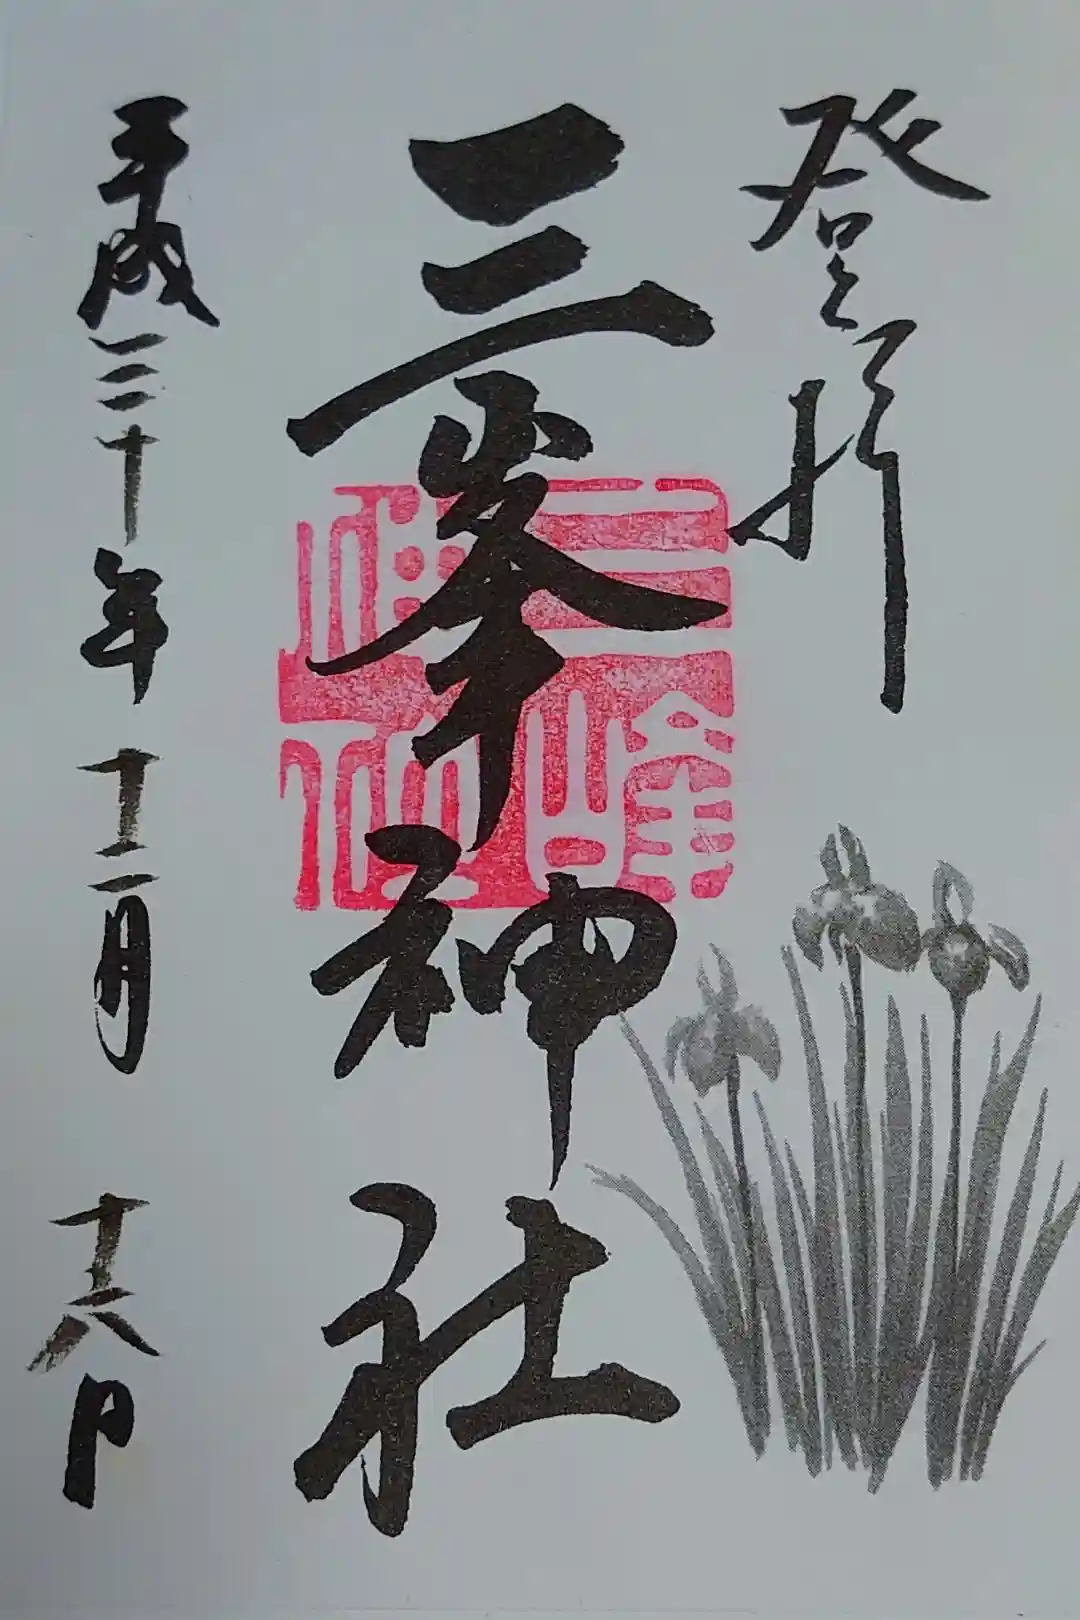 登拝
三峯神社
平成三十年十二月十六日
三峰
神社